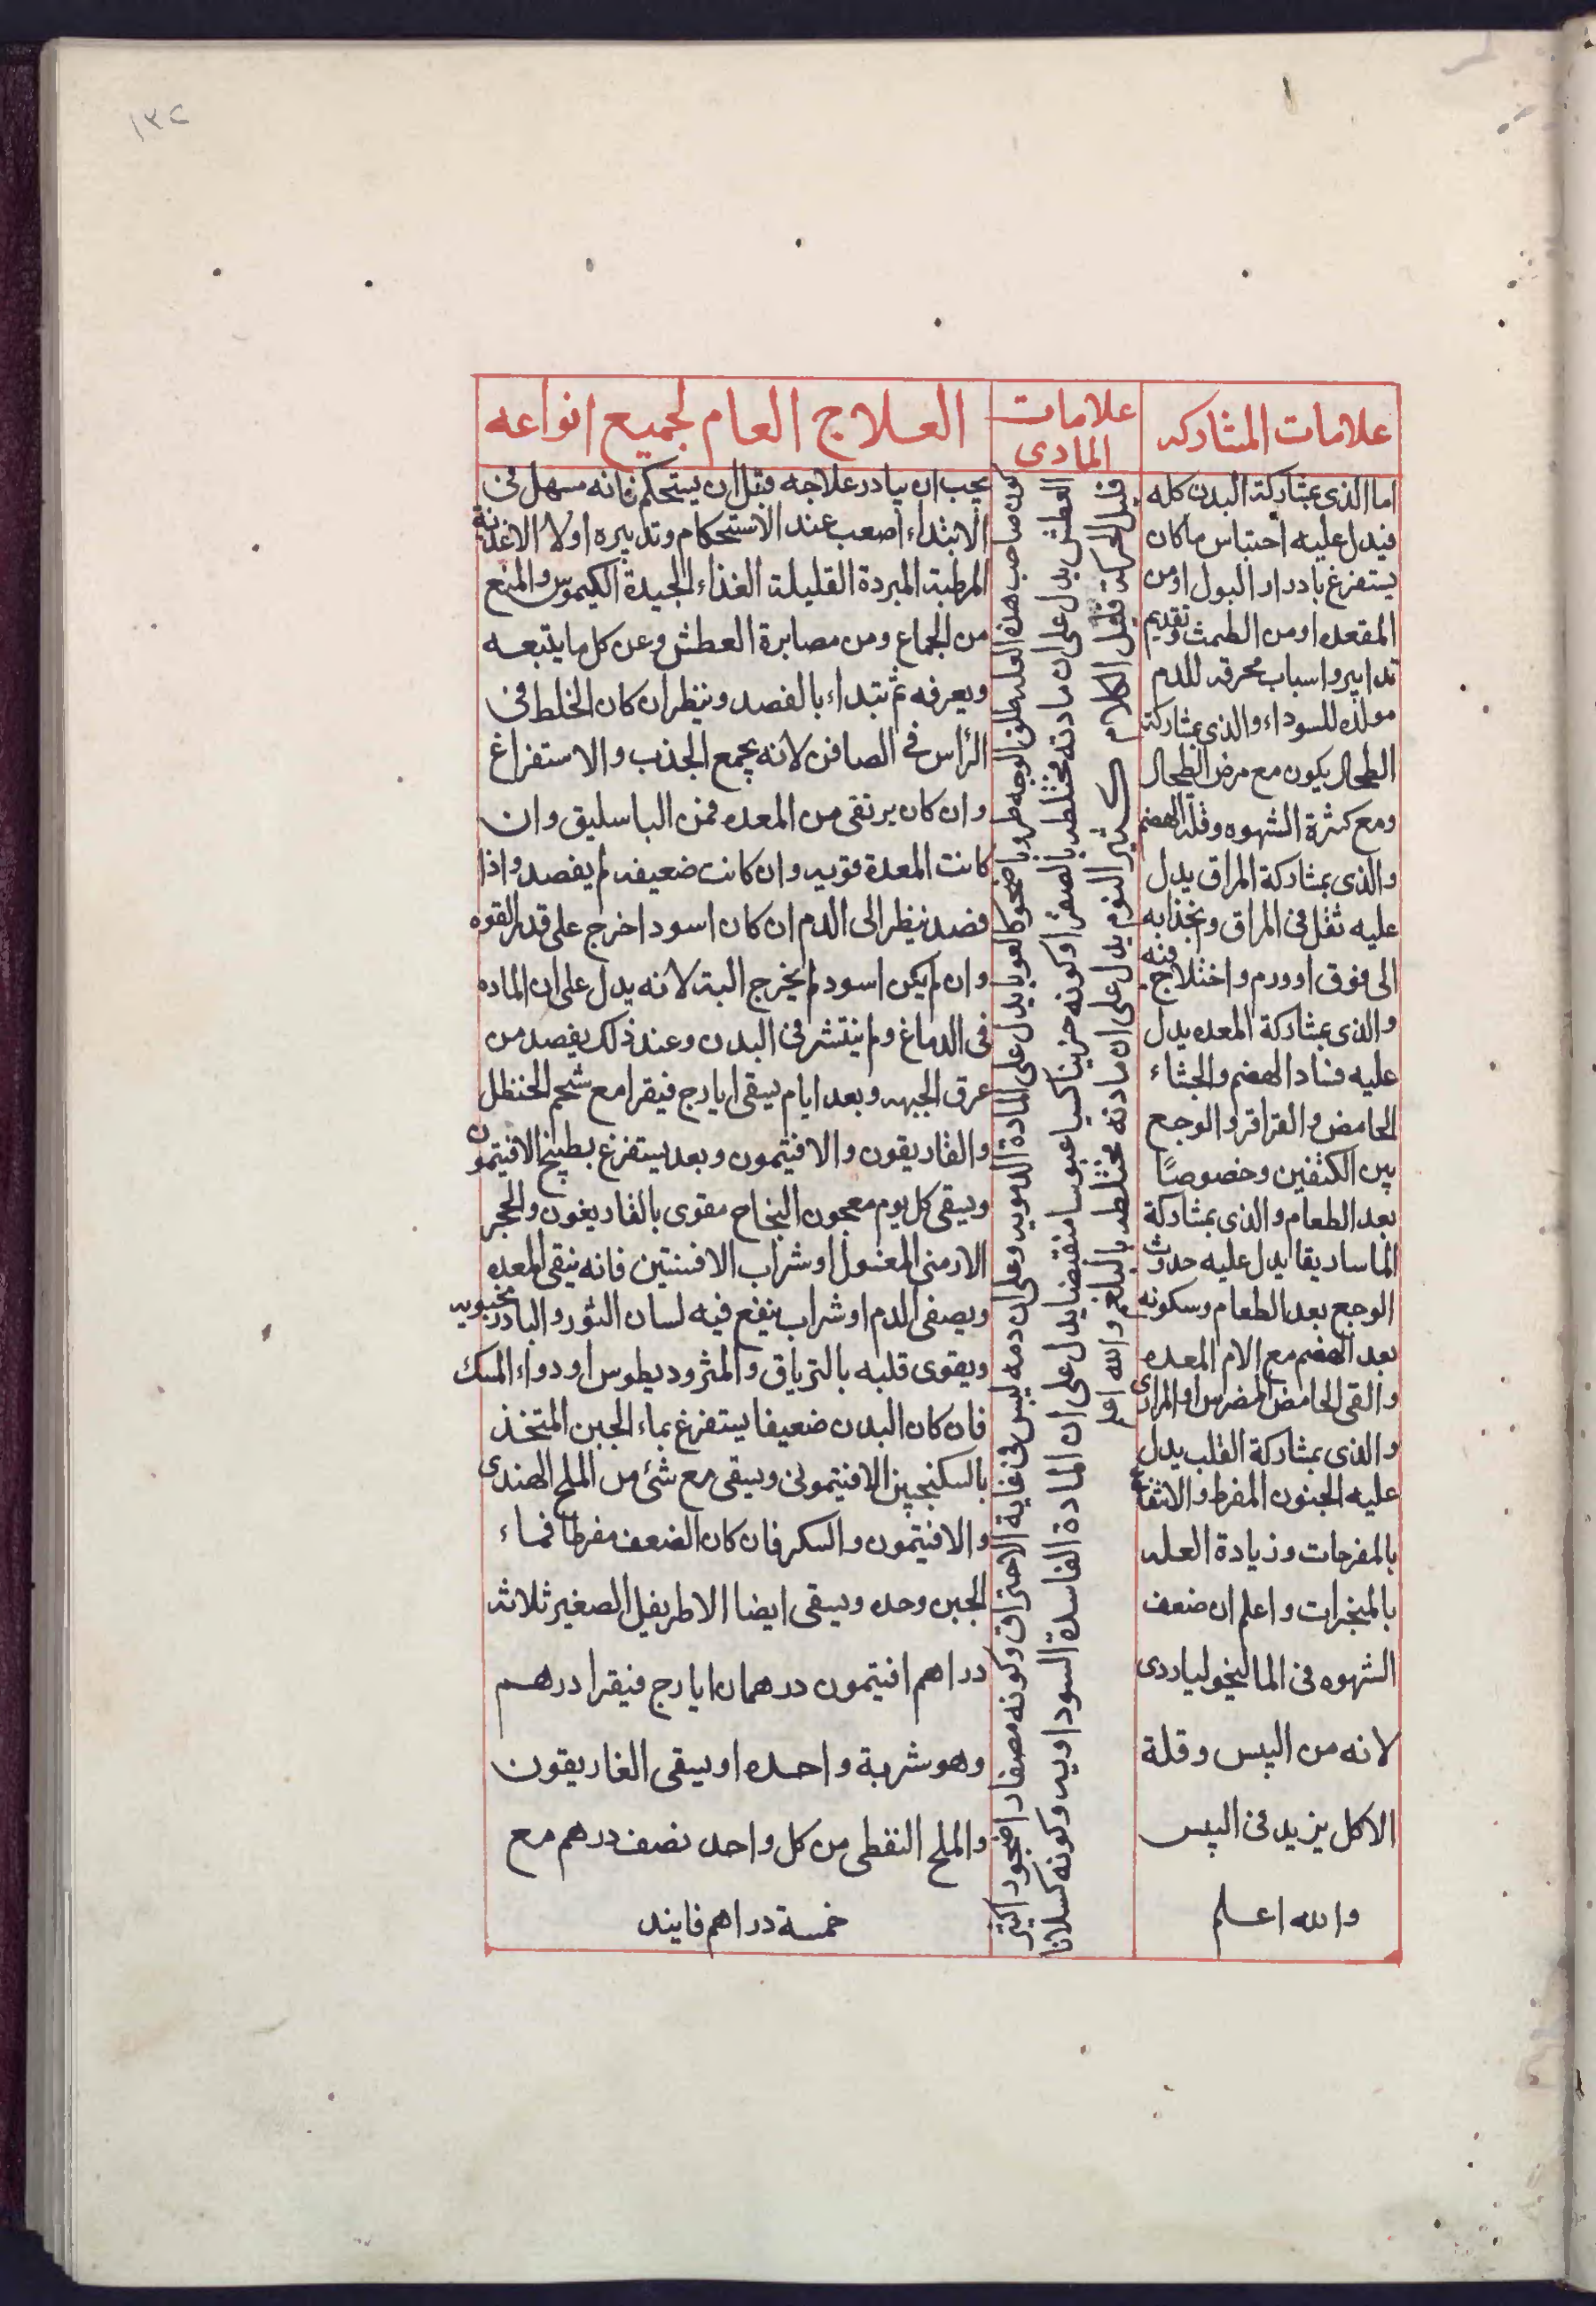 ١٣٢
علامات المشاركه
اما الذى بمشاركة البدن كله
فيدل عليه احتباس ما كان
يستفرغ بادرار البول او من
المقعده او من الطمث وتقديم
تدابير واسباب محرقه للدم
مولده للسوداء والذى بمشاركة
الطحال يكون مع مرض الطحال
ومع كثرة الشهوه وقلة الهضم
والذى بمشاركة المراق يدل
عليه ثقل فى المراق ونجذابه
الى فوق او ورم واختلاج فيه
والذى بمشاركة المعده يدل
عليه فساد الهضم والجشاء
الحامض والقراقر والوجع
بين الكتفين وخصوصًا
بعد الطعام والذى بمشاركة
الماساريقا يدل عليه حدوث
الوجع بعد الطعام وسكونه
بعد الهضم مع الام المعده
والقى الحامض المضرس او المرارى
والذى بمشاركة القلب يدل
عليه الجنون المفرط والانتفاع
بالمفرحات وزيادة العله
بالمبخرات واعلم ان ضعف
الشهوه فى الماليخوليا ردى
لانه من اليبس وقلة
الاكل يزيد فى اليبس
والله اعلم
علامات
المادى
كون صاحب هذه العله طلق الوجه طروبا ضحوكا لعوبا يدل على المادة الدمويه وعلى ان دمه ليس فى غاية الاحتراق وكونه مصفارا ضجورا كثير
العطش يدل على ان مادته مختلطه بالصفرا وكونه حزينا كسيا عبوسا منقبضا يدل على ان المادة الفاسدة السوداويه وكونه كسلانا
قليل الحركة قليل الكلام كثير النوم يدل على ان مادته مختلطه بالبلغم والله اعلم
العلاج العام لجميع انواعه
يجب ان يبادر علاجه قبل ان يستحكم فانه سهل فى
الابتداء اصعب عند الاستحكام وتدبيره اولا الاغذية
المرطبة المبردة القليلة الغذاء الجيدة الكيموس والمنع
من الجماع ومن مصابرة العطش وعن كل ما يتبعه
ويعرفه ثم تبتداء بالفصد وينظر ان كان الخلط فى
الرأس فى الصافن لانه يجمع الجذب والاستفراغ
وان كان يرتقى من المعده فمن الباسليق وان
كانت المعدة قويه وان كانت ضعيفه لم يفصد واذا
فصد ينظر الى الدم ان كان اسود اخرج على قدر القوه
وان لم يكن اسود لم يخرج البته لانه يدل على ان الماده
فى الدماغ ولم ينتشر فى البدن وعند ذلك يفصد من
عرق الجبهه وبعد ايام يسقى ايارج فيقرا مع شحم الحنظل
والغاريقون والافتيمون وبعد يستفرغ بطبيخ الافتيمون
ويسقى كل يوم معجون النجاح مقوى بالغاريغون والحجر
الارمنى المغسول او شراب الافسنتين فانه ينقى المعده
ويصفى الدم او شراب ينفع فيه لسان الثور والبادرنجبويه
ويقوى قلبه بالترياق والمثروديطوس او دواء المسك
فان كان البدن ضعيفا يستفرغ بماء الجبن المتخذ
بالسكنجبين الافتيمونى ويسقى مع شئ من الملح الهندى
والافتيمون والسكر فان كان الضعف مفرطا فماء
الجبن وحده ويسقى ايضا الاطريفل الصغير ثلاثه
دراهم افتيمون درهمان ايارج فيقرا درهم
وهو شربة واحده او يسقى الغاريقون
والملح النفطى من كل واحد نصف درهم مع
خمسة دراهم فايند